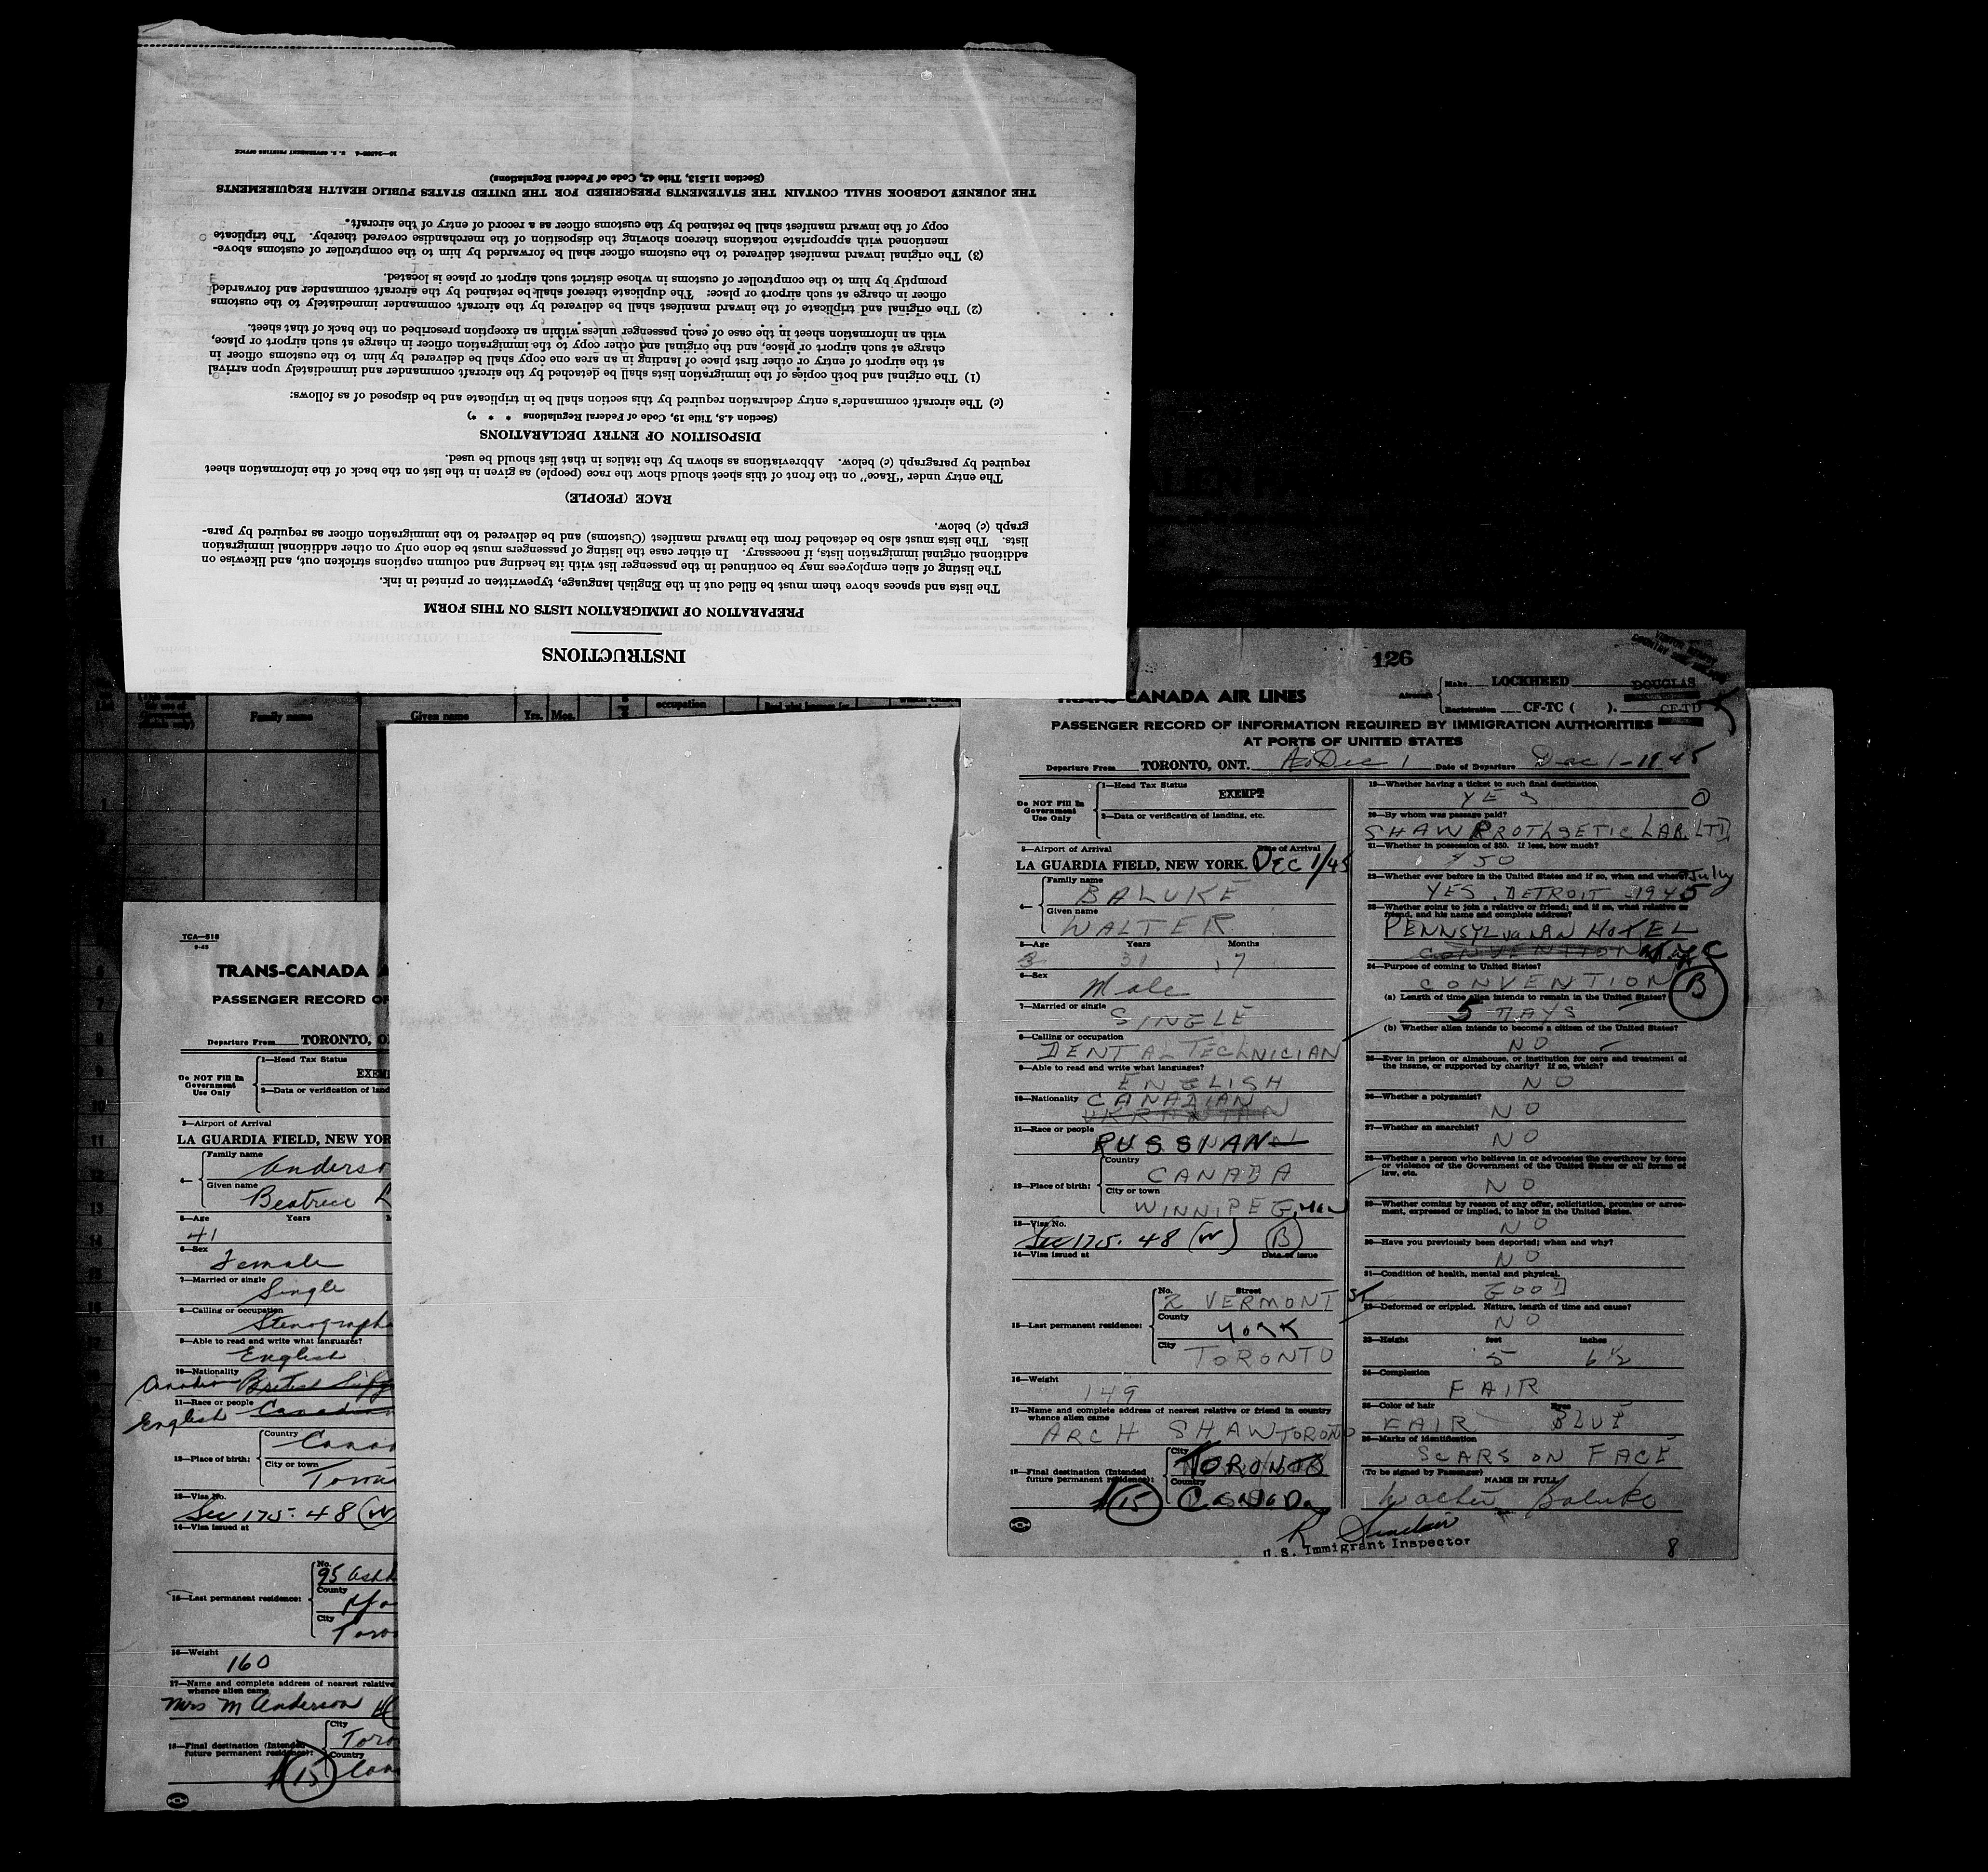 INSTRUCTIONS
PREPARATION OF IMMIGRATION LISTS ON THIS FORM
The lists and spaces above them must be filled out in the English language, typewritten or printed in ink.
The listing of alien employees may be continued in the passenger list with its heading and column captions stricken out, and likewise on
additional original immigration lists, if necessary. In either case the listing of passengers must be done only on other additional immigration
lists. The lists must also be detached from the inward manifest (Customs) and be delivered to the immigration officer as required by para-
graph (c) below.
RACE (PEOPLE)
The entry under "Race" on the front of this sheet should show the race (people) as given in the list on the back of the information sheet
required by paragraph (c) below. Abbreviations as shown by the italics in that list should be used.
DISPOSITION OF ENTRY DECLARATIONS
(Section 4.8, Title 19, Code of Federal Regulations * * *)
(c) The aircraft commander's entry declaration required by this section shall be in triplicate and be disposed of as follows:
(1) The original and both copies of the immigration lists shall be detached by the aircraft commander and immediately upon arrival
at the airport of entry or other first place of landing in an area one copy shall be delivered by him to the customs officer in
charge at such airport or place, and the original and other copy to the immigration officer in charge at such airport or place,
with an information sheet in the case of each passenger unless within an exception prescribed on the back of that sheet.
(2) The original and triplicate of the inward manifest shall be delivered by the aircraft commander immediately to the customs
officer in charge at such airport or place: The duplicate thereof shall be retained by the aircraft commander and forwarded
promptly by him to the comptroller of customs in whose district such airport or place is located.
(3) The original inward manifest delivered to the customs officer shall be forwarded by him to the comptroller of customs above-
mentioned with appropriate notations thereon showing the disposition of the merchandise covered thereby. The triplicate
copy of the inward manifest shall be retained by the customs officer as a record of entry of the aircraft.
THE JOURNEY LOGBOOK SHALL CONTAIN THE STATEMENTS PRESCRIBED FOR THE UNITED STATES PUBLIC HEALTH REQUIREMENTS
(Section 11.513, Title 42, Code of Federal Regulations)
U. S. GOVERNMENT PRINTING OFFICE
Family name Given name Yrs. Mos. occupation
TCA—518
TRANS-CANADA A
PASSENGER RECORD OF
Departure From TORONTO, O
Do NOT Fill In Government Use Only
1—Head Tax Status
EXEM
2—Data or verification of land
3—Airport of Arrival
LA GUARDIA FIELD, NEW YOR
4— Family name Anderso
Given name Beatrice
5—Age Years
41
6—Sex
Female
7—Married or single
Single
8—Calling or occupation
Stenograph
9—Able to read and write what languages?
English
10—Nationality
Canadian British Subj
11—Race or people
English Canadian
12—Place of birth: Country Canad
City or town Toron
13—Visa No.
Sec 175. 48 (W)
14—Visa issued at
15—Last permanent residence: No. 95
County Yo
City Toro
16—Weight
160
17—Name and complete address of nearest relative
whence alien came
Mrs M Anderson
18—Final destination (Intended
future permanent residence): City Toro
Country Cana
15
126
TRANS-CANADA AIR LINES
Aircraft Make LOCKHEED DOUGLAS
Registration CF-TC ( ). CF-TD
PASSENGER RECORD OF INFORMATION REQUIRED BY IMMIGRATION AUTHORITIES
AT PORTS OF UNITED STATES
Departure From TORONTO, ONT. Dec 1 Date of Departure Dec 1-1945
Do NOT Fill In Government Use Only
1—Head Tax Status
EXEMPT
2—Data or verification of landing, etc.
3—Airport of Arrival Date of Arrival
LA GUARDIA FIELD, NEW YORK. DEC 1/45
4— Family name
BALUKE
Given name
WALTER
5—Age Years Months
31 7
6—Sex
Male
7—Married or single
SINGLE
8—Calling or occupation
DENTAL TECHNICIAN
9—Able to read and write what languages?
ENGLISH
10—Nationality CANADIAN
UKRANIAN
11—Race or people
RUSSIAN
12—Place of birth: Country
CANADA
City or town
WINNIPEG, MAN
13—Visa No.
Sec 175. 48 (W) B
14—Visa issued at Date of issue
15—Last permanent residence: No. Street
2 VERMONT ST
County
YORK
City
TORONTO
16—Weight
149
17—Name and complete address of nearest relative or friend in country
whence alien came
ARCH SHAW TORONTO
18—Final destination (Intended
future permanent residence): City TORONTO
Country CaNaDa
15
19—Whether having a ticket to such final destination
YES
20—By whom was passage paid?
SHAW PROTHSETIC LAB. LTD.
21—Whether in possession of $50. If less, how much?
$50
22—Whether ever before in the United States and if so, when and where? July
YES. DETROIT 1945
23—Whether going to join a relative or friend; and if so, what relative or
friend, and his name and complete address?
PENNSYLVANAN HOTEL
CONVENTION N.Y.C
24—Purpose of coming to United States?
CONVENTION B
(a) Length of time alien intends to remain in the United States?
5 DAYS
(b) Whether alien intends to become a citizen of the United States?
NO
25—Ever in prison or almshouse, or institution for care and treatment of
the insane, or supported by charity? If so, which?
NO
26—Whether a polygamist?
NO
27—Whether an anarchist?
NO
28—Whether a person who believes in or advocates the overthrow by force
or violence of the Government of the United States or all forms of
law, etc.
NO
29—Whether coming by reason of any offer, solicitation, promise or agree-
ment, expressed or implied, to labor in the United States.
NO
30—Have you previously been deported; when and why?
NO
31—Condition of health, mental and physical.
GOOD
32—Deformed or crippled. Nature, length of time and cause?
NO
33—Height feet inches
5 6 1/2
34—Complexion
FAIR
35—Color of hair Eyes
FAIR BLUE
36—Marks of identification
SCARS ON FACE
(To be signed by Passenger)
NAME IN FULL
Walter Baluke
R Sinclair
U.S. Immigrant Inspector
8